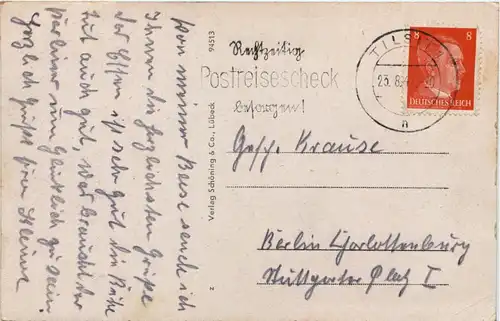 Von meiner Reise sende ich
Ihnen die herzlichsten Grüße
Das Essen ist sehr gut die Ruhe
tut auch gut, was braucht der
Berliner um Glücklich zu sein.
Herzlich Grüßt
94513
Verlag Schöning & Co., Lübeck
2
Rechtzeitig
Postreisescheck
besorgen!
TILSIT
23.8.4
a
8 8
DEUTSCHES REICH
Gesch. Krause
Berlin Charlottenburg
Stuttgarter Platz I